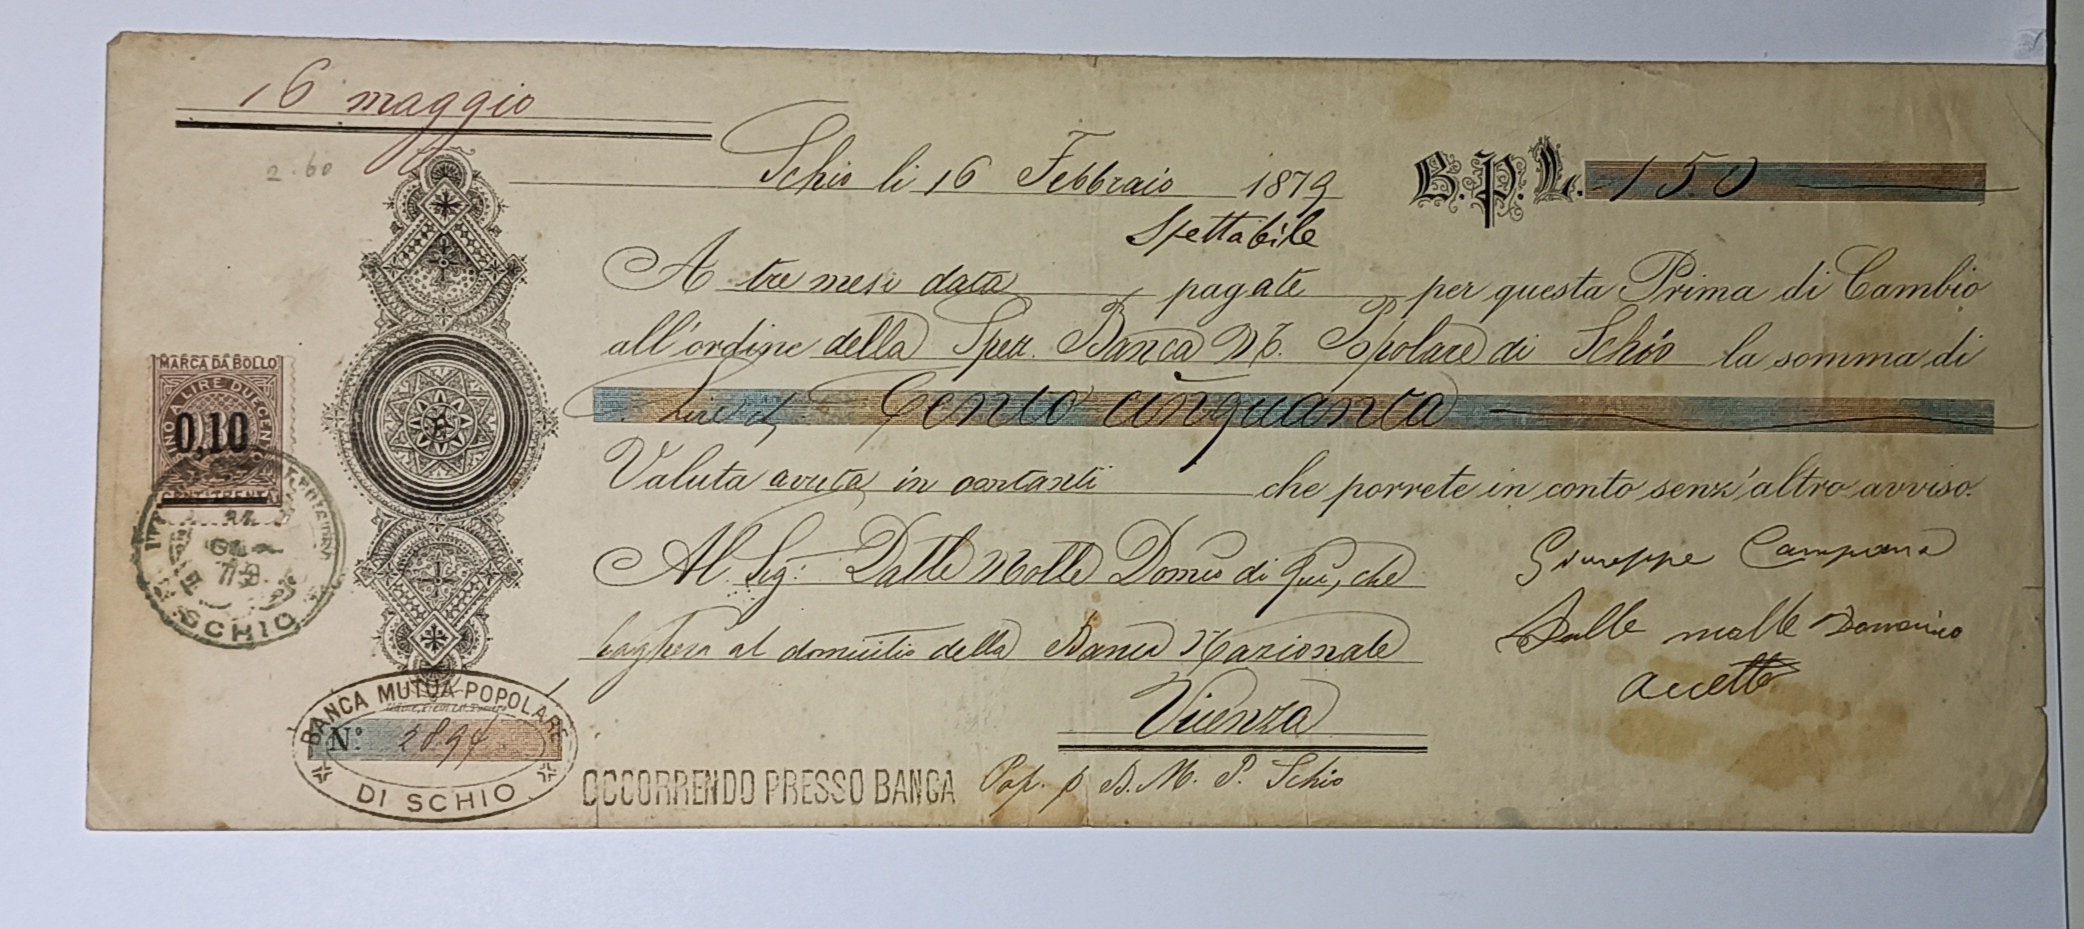 16 maggio
2.60
Schio li 16 Febbraio 1879
B.P.L. 150
Spettabile
A tre mesi data pagate per questa Prima di Cambio
all'ordine della Spett. Banca M. Popolare di Schio la somma di
Lire Cento cinquanta
Valuta avuta in contanti che porrete in conto senz'altro avviso.
Al Sig: Dalle Molle Domco di qui, che
pagherà al domicilio della Banca Nazionale
Vicenza
Giuseppe Campana
Dalle molle Domenico
accetto
MARCA DA BOLLO
FINO A LIRE DUECENTO
0,10
CENT. TRENTA
SCHIO
BANCA MUTUA POPOLARE
N° 2894
DI SCHIO
OCCORRENDO PRESSO BANCA Pop. p B. M. P. Schio